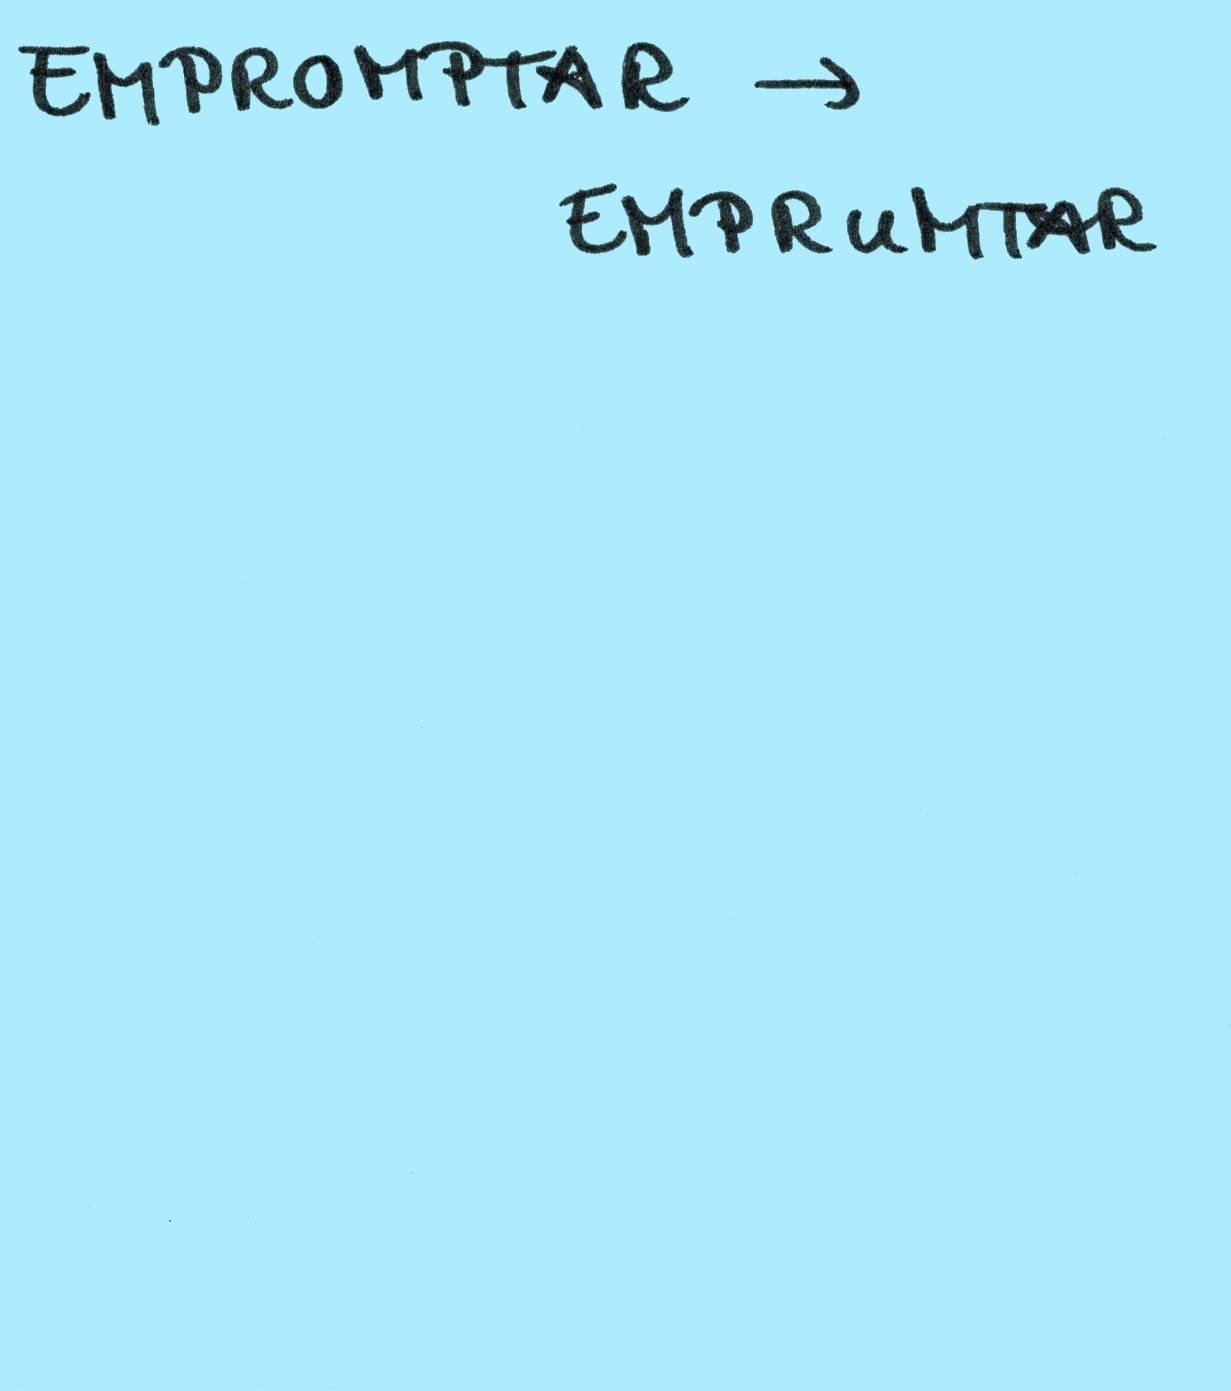 EMPROMPTAR →
EMPRUMTAR